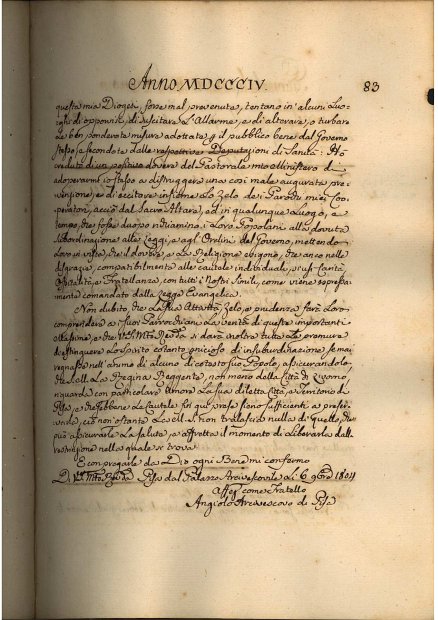 Anno MDCCCIV.
83
questa mia Diogesi, forse mal prevenuta, tentano in' alcuni Luo-
ghi di opponersi, di suscitare l'Allarme, e di alterare, o turbare
le ben ponderate misure adottate p il pubblico bene dal Governo
stesso, e secondate dalle rispettive Deputazioni di Sanità: Ho
creduto di un positivo dovere del Pastorale mio Ministero di
adoperarmi io stesso a distruggere una così male augurata pre-
venzione, e di eccitare insieme lo Zelo dei Parochi miei Coo-
peratori, acciò dal Sacro Altare, ed in qualunque Luogo, e
tempo, che fosse duopo richiamino i Loro Popolani alla dovuta
Subordinazione alle Leggi, e agl' Ordini del Governo, mettendo
Loro in vista, che il dovere, e La Religione esigono, che anco nelle
disgrazie, compatibilmente alle cautele individuali, si usi Carità
Ospitalità, e Fratellanza, con tutti i Nostri Simili, come viene espressa-
mente comandato dalla Legge Evangelica.
Non dubito, che La Sua Attività, Zelo, e prudenza farà Loro
comprendere a' Suoi Parrocchiani La verità di queste importanti
Massime, e che si darà inoltre tutta La premura
di estinguere Lo Spirito cotanto pnicioso di insubordinazione, se mai
regnasse nell' animo di alcuno di cotesto suo Popolo, assicurandolo,
che La Regina Reggente, non meno della Città di Livorno
riguarda con particolare Amore La sua diletta Città, e Territorio di
Pisa, e che sebbene Le Cautele fin qui prese siono sufficienti a preser-
varle, ciò non ostante La M. S. non tralascia nulla di quello, che
può assicurare La Salute, e affretta il momento di Liberarla dalla
restrizione nella quale si trova
E con pregarle da Dio ogni Bene mi confermo
Pisa dal Palazzo Arcivescovile li 6 9bre 1804
Affez come Fratello
Angiolo Arcivescovo di Pisa